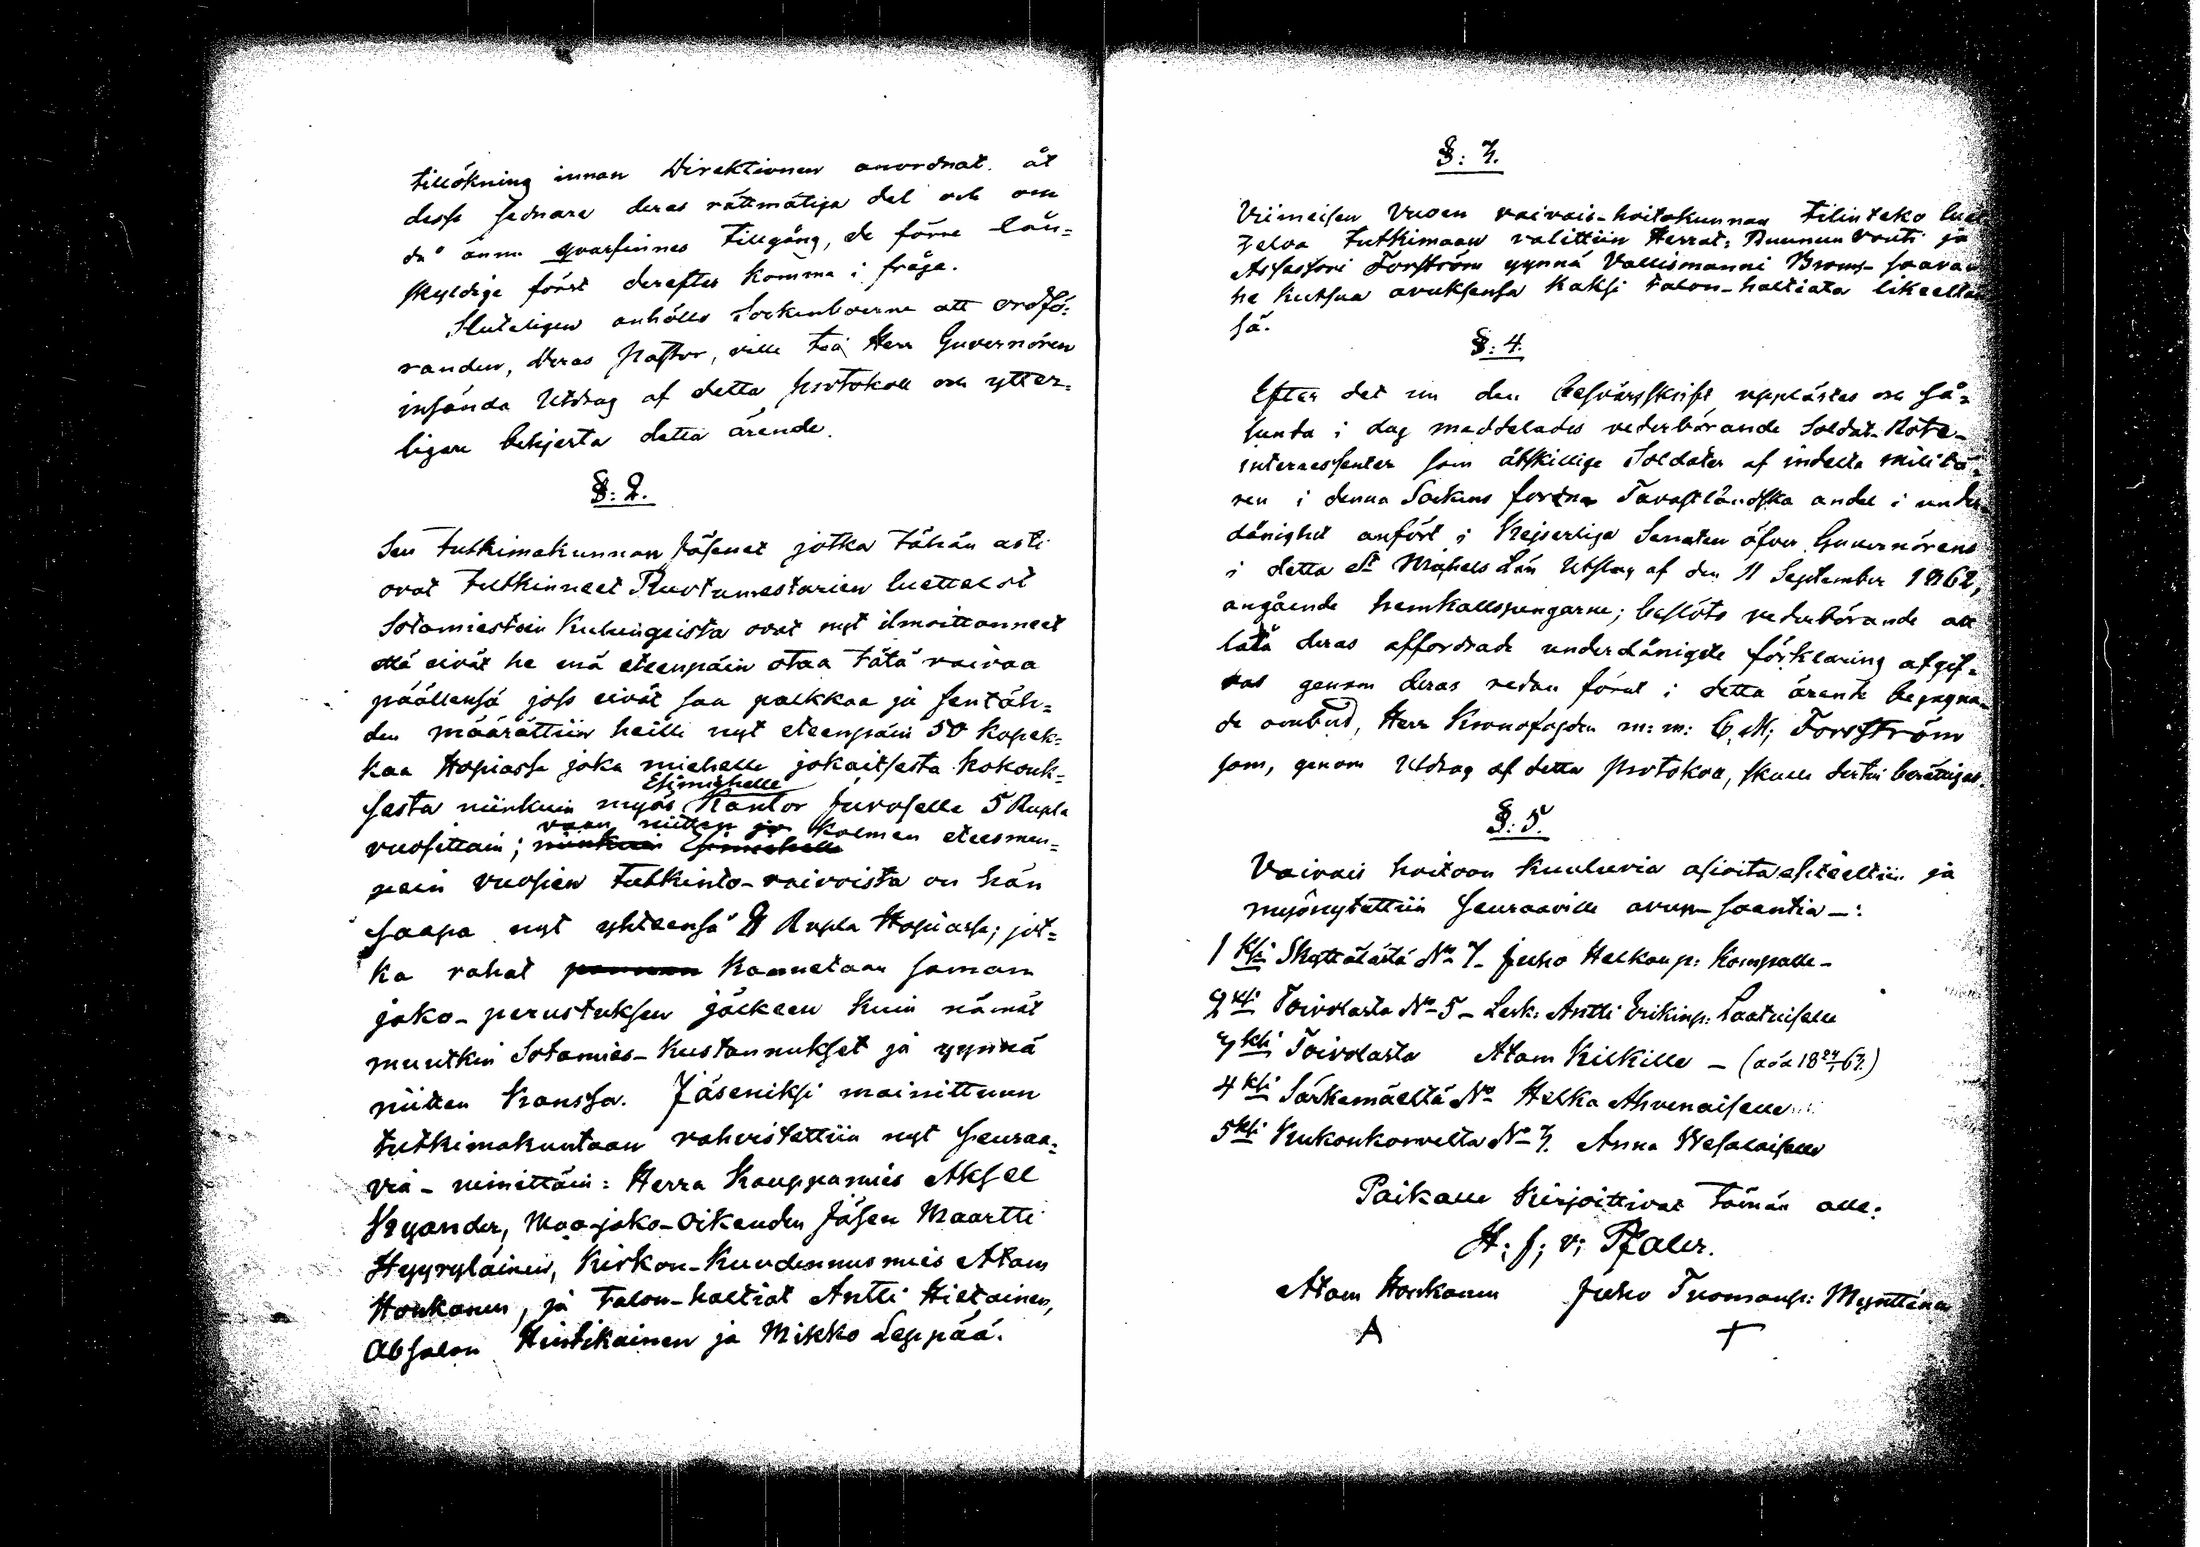 tillökning innan Direktionen anordnat åt
desse sednare deras rättmätiga del och om
då ännu qvarfinnes tillgång, de förre lån=
skyldige först derefter komma i fråga.
Sluteligen anhöllo Sockenboerne att ordfö=
randen, deras Pastor, ville till Herr Guvernören
insända Utdrag af detta Protokoll och ytter=
ligare behjerta detta ärende.
§: 2.
Sen tutkimakunnan Jäsenet jotka tähän asti
ovat tutkinneet Ruotumestarien luettelot
Sotamiestein Kulungeista ovat nyt ilmoittanneet
että eivät he enä eteenpäin otaa tätä vaivaa
päällensä joss eivät saa palkkaa ja sentäh=
den määrättiin heille nyt eteenpäin 50 Kopek=
kaa Hopiassa joka miehelle jokaitsesta Kokouk=
Esimiehelle
sesta niinkuin myös Kantor Juvoselle 5 Rupla
vaan niitten jo
vuosittain; niinkuin Esimiehelle Kolmen eteesmen=
nein vuosien tutkinto-vaivoista on hän
saapa nyt yhteensä 8 Rupla Hopiassa; jot=
ka rahat pannan Kannetaan saman
jako-perustuksen jälkeen Kuin nämät
muutkin Sotamies-Kustannukset ja yynnä
niitten Kanssa. Jäseniksi mainittuun
tutkimakuntaan vahvistettiin nyt seuraa=
via - nimittäin: Herra Kauppamies Aksel
Nygander, Maa-jako-Oikeuden Jäsen Maartti
Hyyryläinen, Kirkon-Kuudennusmies Atam
Honkanen, ja talon-haltiat Antti Hietainen,
Absalon Hintikainen ja Mikko Leppää.
§: 3.
Viimeisen Vuoen vaivais-hoitokunnan tilinteko
tutkimaan valittiin Herrat: Ruunun Vouti ja
Assessori Forström yynnä Vallesmanni
he Kutsua avuksensa Kaksi talon-haltiata likeeltän
sä.
§: 4.
Efter det nu den besvärsskrift upplästes och så=
lunda i dag meddelades vederbörande Soldat-Rote-
interessenter som åtskillige Soldater af indelta militä=
ren i denna Sockens fordna Tavastländska andel i under
dånighet anfört i Kejserliga Senaten öfver Guvernörens
i detta St Michels Län Utslag af den 11 September 1862,
angående hemkallspengarne; beslöto vederbörande att
låta deras affordrade underdånigste förklaring afgif=
vas genom deras redan förut i detta ärende begagna=
de ombud, Herr Kronofogden m: m: C. M; Forsström
som, genom Utdrag af detta Protokoll, skulle dertill berättigas.
§: 5.
Vaivais hoitoon Kuuluvia asioita esiteltiin ja
myönytettiin seuraaville avun-saantia -:
1 ksi Skyttälästä No 7. Juho Halkonp: Kompalle -
2 ksi Toivolasta No 5 - Lesk: Antti Erikinp: Laatuiselle
3 ksi Toivolasta Atam Kilkille -
4 ksi Särkemäeltä No Helka Ahvenaiselle
5 ksi Kukonkorvelta No 3. Anna Wesalaiselle
Paikalle Kirjoittivat tämän alle:
H; f; v; Pfaler.
Atam Honkanen Juho Tuomanp: Mynttinen
A +